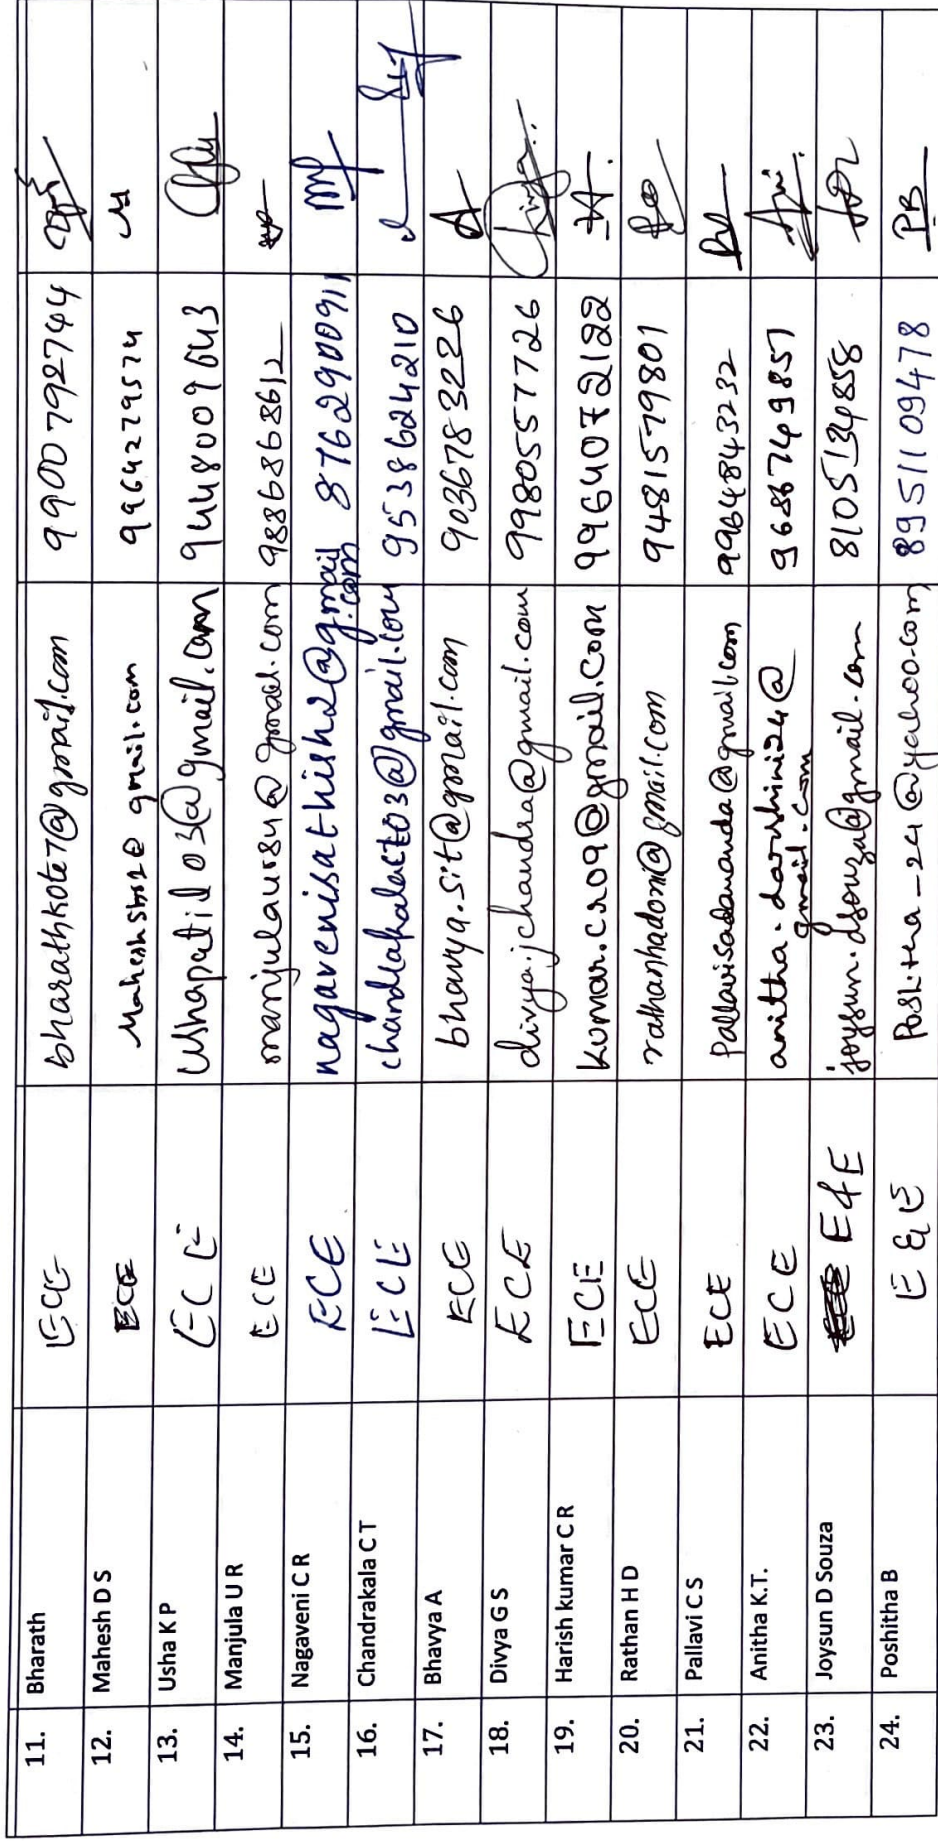 11. Bharath ECE bharathkote7@gmail.com 9900792744
12. Mahesh D S ECE 9964279574
13. Usha K P ECE Ushapatil03@gmail.com 9448009643
14. Manjula U R ECE manjulaur84@gmail.com 9886868612
15. Nagaveni C R ECE nagavenisathish2@gmail
.com 8762900911
16. Chandrakala C T ECE chandrakalact03@gmail.com 9538624210
17. Bhavya A ECE bhavya.sit@gmail.com 9036783226
18. Divya G S ECE divya.jchandra@gmail.com 9980557726
19. Harish kumar C R ECE kumar.cr09@gmail.com 9964072122
20. Rathan H D ECE rathanhadon@gmail.com 9481579801
21. Pallavi C S ECE Pallavisadananda@gmail.com 9964843232
22. Anitha K.T. ECE anitha.darshini24@
gmail.com 9686749851
23. Joysun D Souza E&E joysun.dsouza@gmail.com 8105134858
24. Poshitha B E & E Poshitha_24@yahoo.com 8951109478 PB